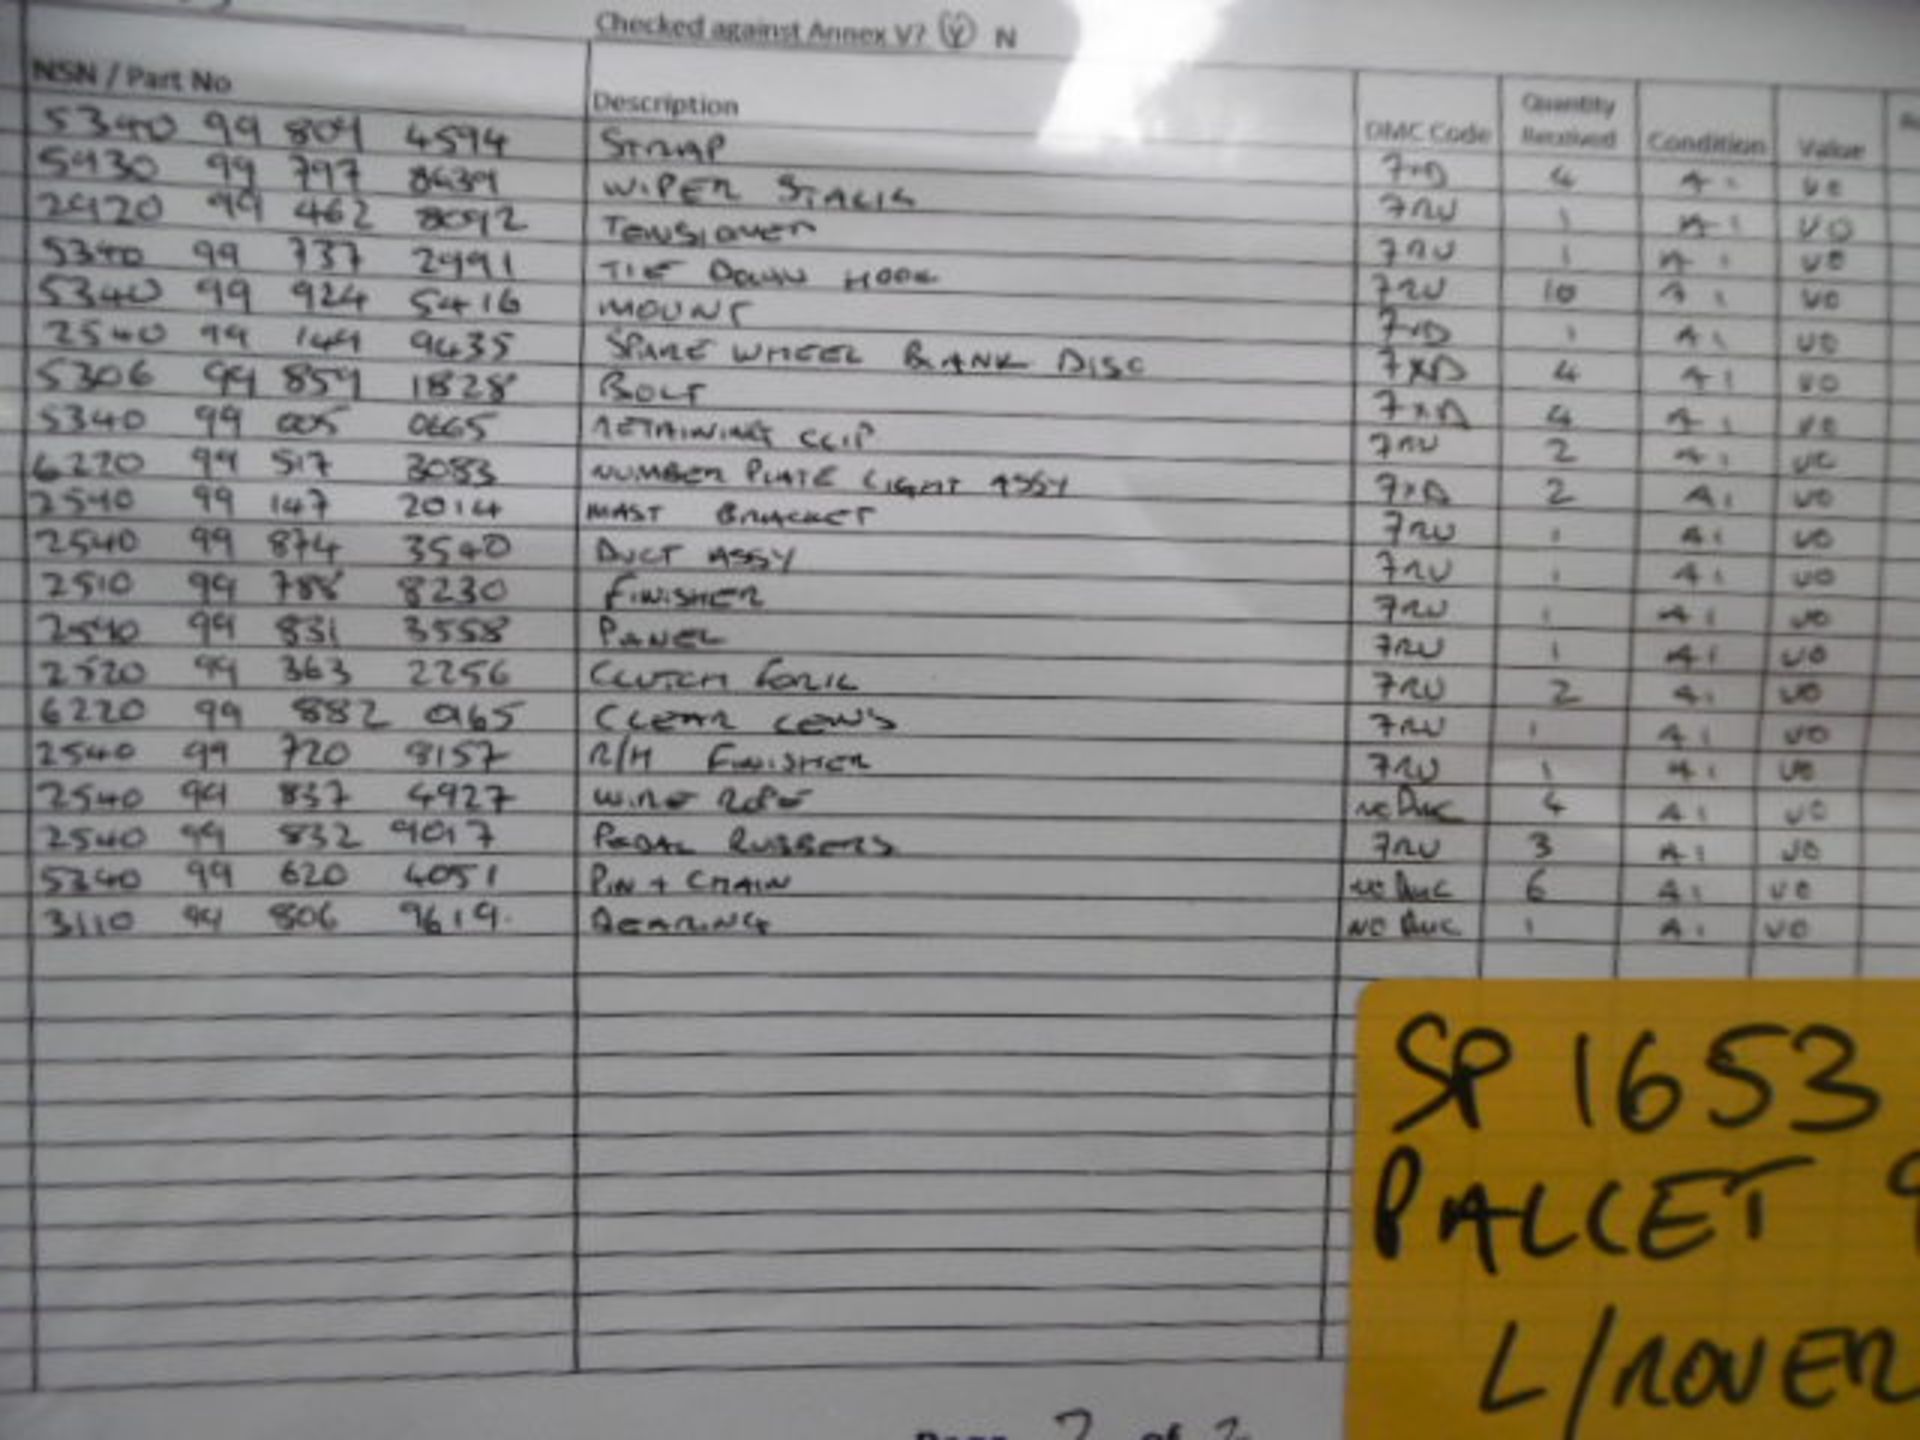 Checked against Annex V? Y N
NSN / Part No Description DMC Code Quantity Received Condition Value
5340 99 809 4594 STRAP 7XD 4 A1 UO
5930 99 797 8639 WIPER STALK 7RU 1 A1 UO
2920 99 462 8092 TENSIONER 7RU 1 A1 UO
5340 99 737 2991 TIE DOWN HOOK 7RU 10 A1 UO
5340 99 924 5416 MOUNT 7XD 1 A1 UO
2540 99 149 9435 SPARE WHEEL BLANK DISC 7XD 4 A1 UO
5306 99 859 1828 BOLT 7XD 4 A1 UO
5340 99 005 0665 RETAINING CLIP 7RU 2 A1 UO
6220 99 517 3083 NUMBER PLATE LIGHT ASSY 7XD 2 A1 UO
2540 99 147 2014 MAST BRACKET 7RU 1 A1 UO
2540 99 874 3540 DUCT ASSY 7RU 1 A1 UO
2510 99 788 8230 FINISHER 7RU 1 A1 UO
2540 99 831 3558 PANEL 7RU 1 A1 UO
2520 99 363 2256 CLUTCH FORK 7RU 2 A1 UO
6220 99 882 0165 CLEAR LENS 7RU 1 A1 UO
2540 99 720 8157 R/H FINISHER 7RU 1 A1 UO
2540 99 837 4927 WIRE ROPE NO DMC 4 A1 UO
2540 99 832 9017 PEDAL RUBBERS 7RU 3 A1 UO
5340 99 620 4051 PIN + CHAIN NO DMC 6 A1 UO
3110 99 806 9619 BEARING NO DMC 1 A1 UO
SP 1653
PALLET 9
L/ROVER
Page 2 of 2